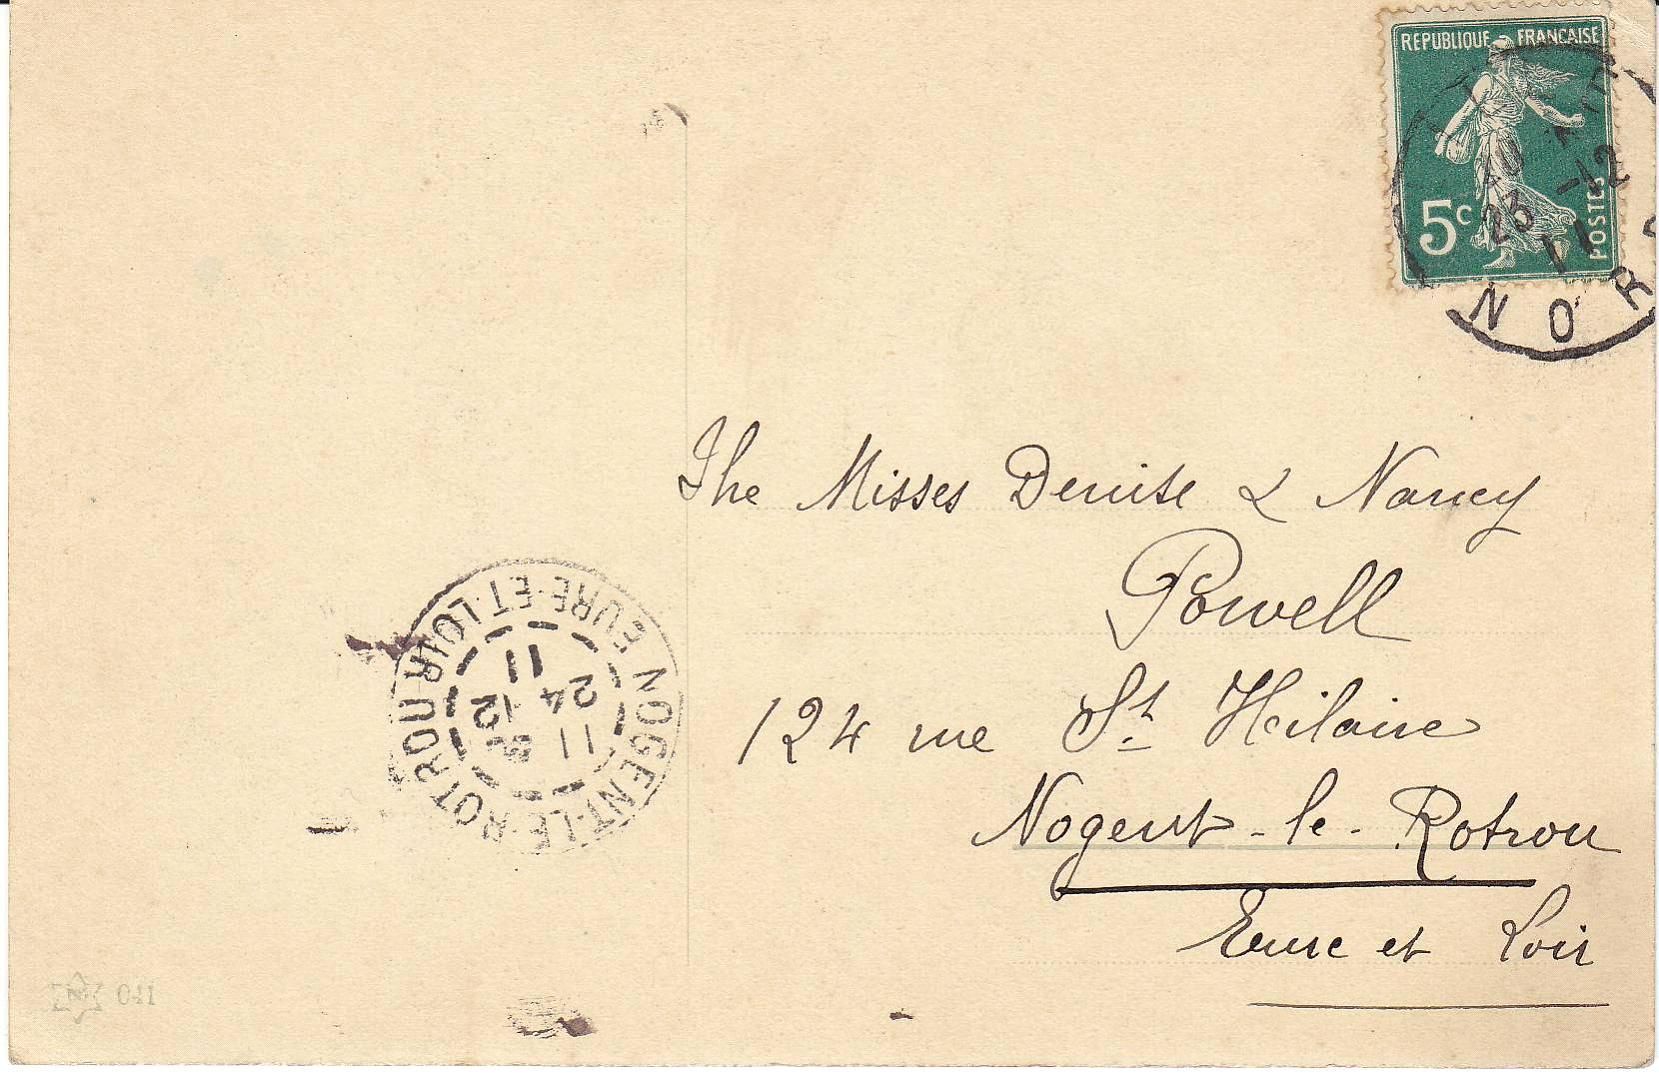 REPUBLIQUE FRANÇAISE
5c
POSTES
23 -12
11
NORD
The Misses Denise & Nancy
Powell
124 rue St Hilaire
Nogent-le-Rotrou
Eure et Loir
NOGENT-LE-ROTROU
EURE-ET-LOIR
11
24 12
11
041